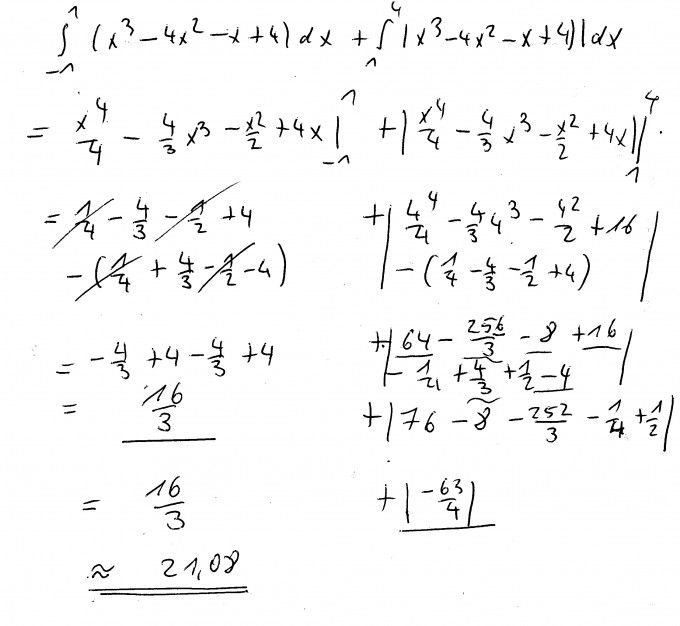 ∫_{-1}^{1} (x³ - 4x² - x + 4) dx + ∫_{1}^{4} |x³ - 4x² - x + 4)| dx
= x⁴/4 - 4/3 x³ - x²/2 + 4x |_{-1}^{1} + | x⁴/4 - 4/3 x³ - x²/2 + 4x | |_{1}^{4}
= 1/4 - 4/3 - 1/2 + 4 + | 4⁴/4 - 4/3 4³ - 4²/2 + 16
- (1/4 + 4/3 - 1/2 - 4) - (1/4 - 4/3 - 1/2 + 4) |
= - 4/3 + 4 - 4/3 + 4 + | 64 - 256/3 - 8 + 16
- 1/4 + 4/3 + 1/2 - 4 |
= 16/3 + | 76 - 8 - 252/3 - 1/4 + 1/2 |
= 16/3 + | -63/4 |
≈ 21,08